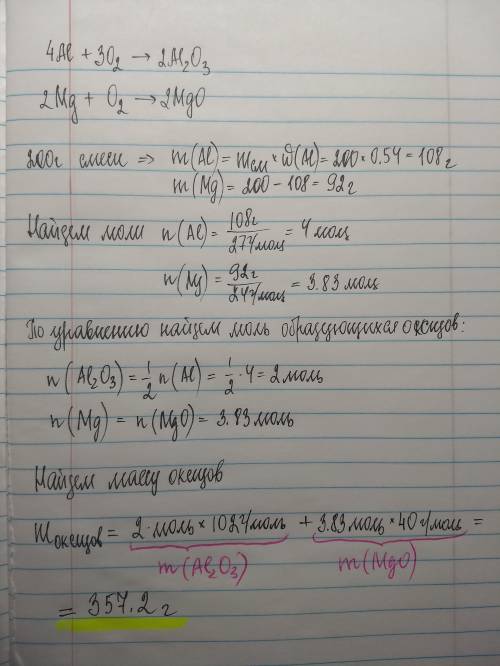 4Al + 3O₂ → 2Al₂O₃
2Mg + O₂ → 2MgO
200г смеси => m(Al) = mсм × ω(Al) = 200 × 0.54 = 108 г
m(Mg) = 200 - 108 = 92 г
Найдем моли n(Al) = 108г / 27г/моль = 4 моль
n(Mg) = 92г / 24г/моль = 3.83 моль
По уравнению найдем моль образующихся оксидов:
n(Al₂O₃) = 1/2 n(Al) = 1/2 · 4 = 2 моль
n(Mg) = n(MgO) = 3.83 моль
Найдем массу оксидов
mоксидов = 2 · моль × 102г/моль + 3.83 моль × 40 г/моль =
m(Al₂O₃) m(MgO)
= 357.2 г